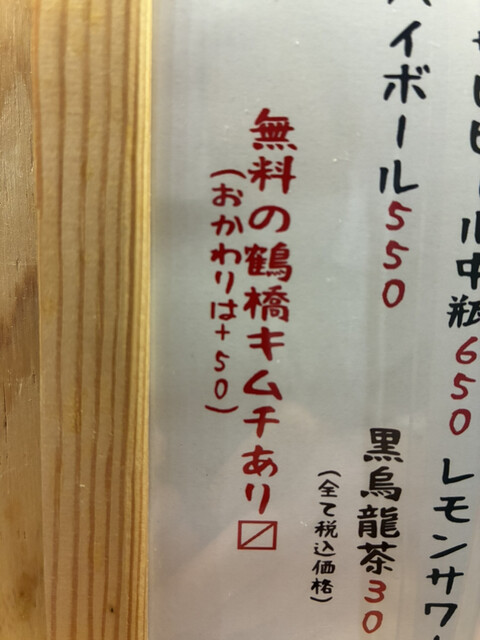 ビール中瓶650 レモンサワ
ハイボール550
黒烏龍茶30
(全て税込価格)
無料の鶴橋キムチあり〼
(おかわりは+50)